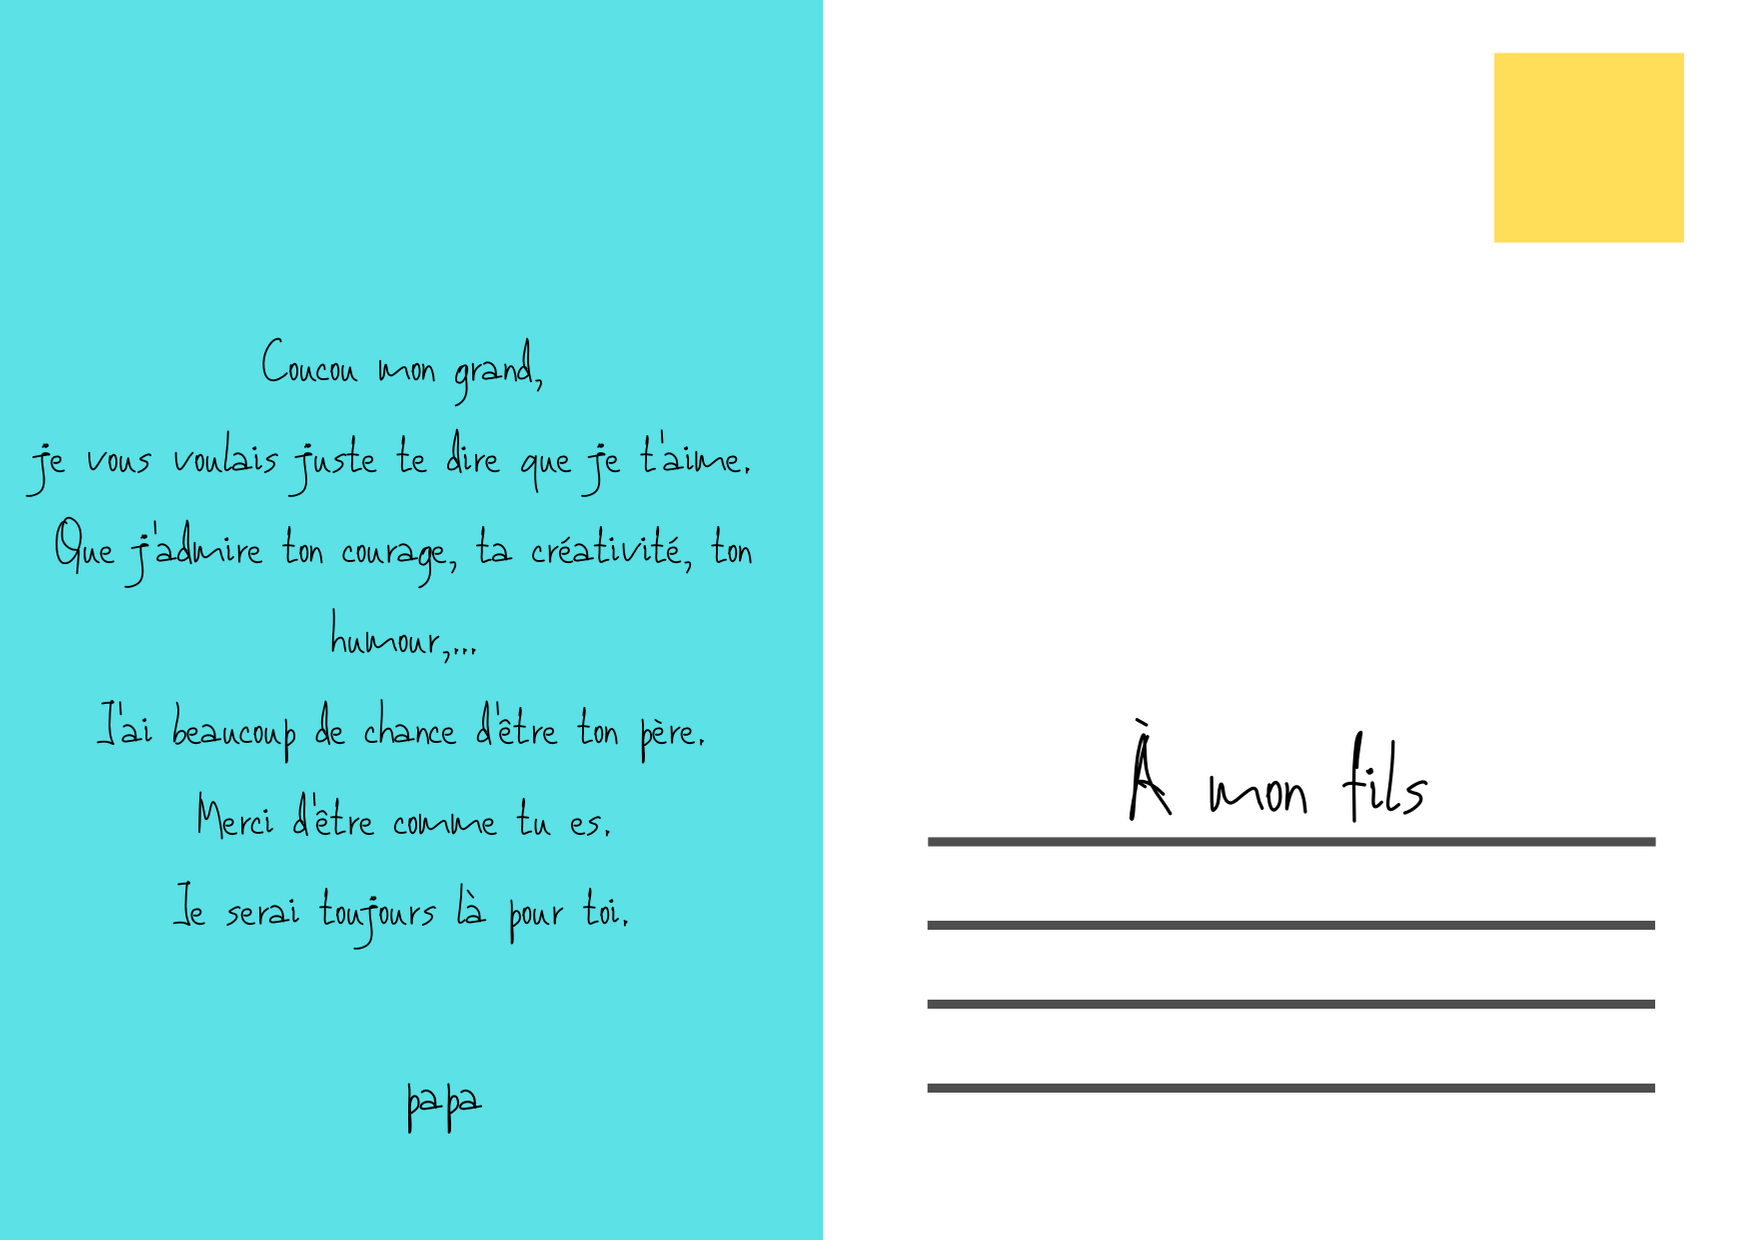 Coucou mon grand,
je vous voulais juste te dire que je t'aime.
Que j'admire ton courage, ta créativité, ton
humour,...
J'ai beaucoup de chance d'être ton père.
Merci d'être comme tu es.
Je serai toujours là pour toi.
papa
À mon fils